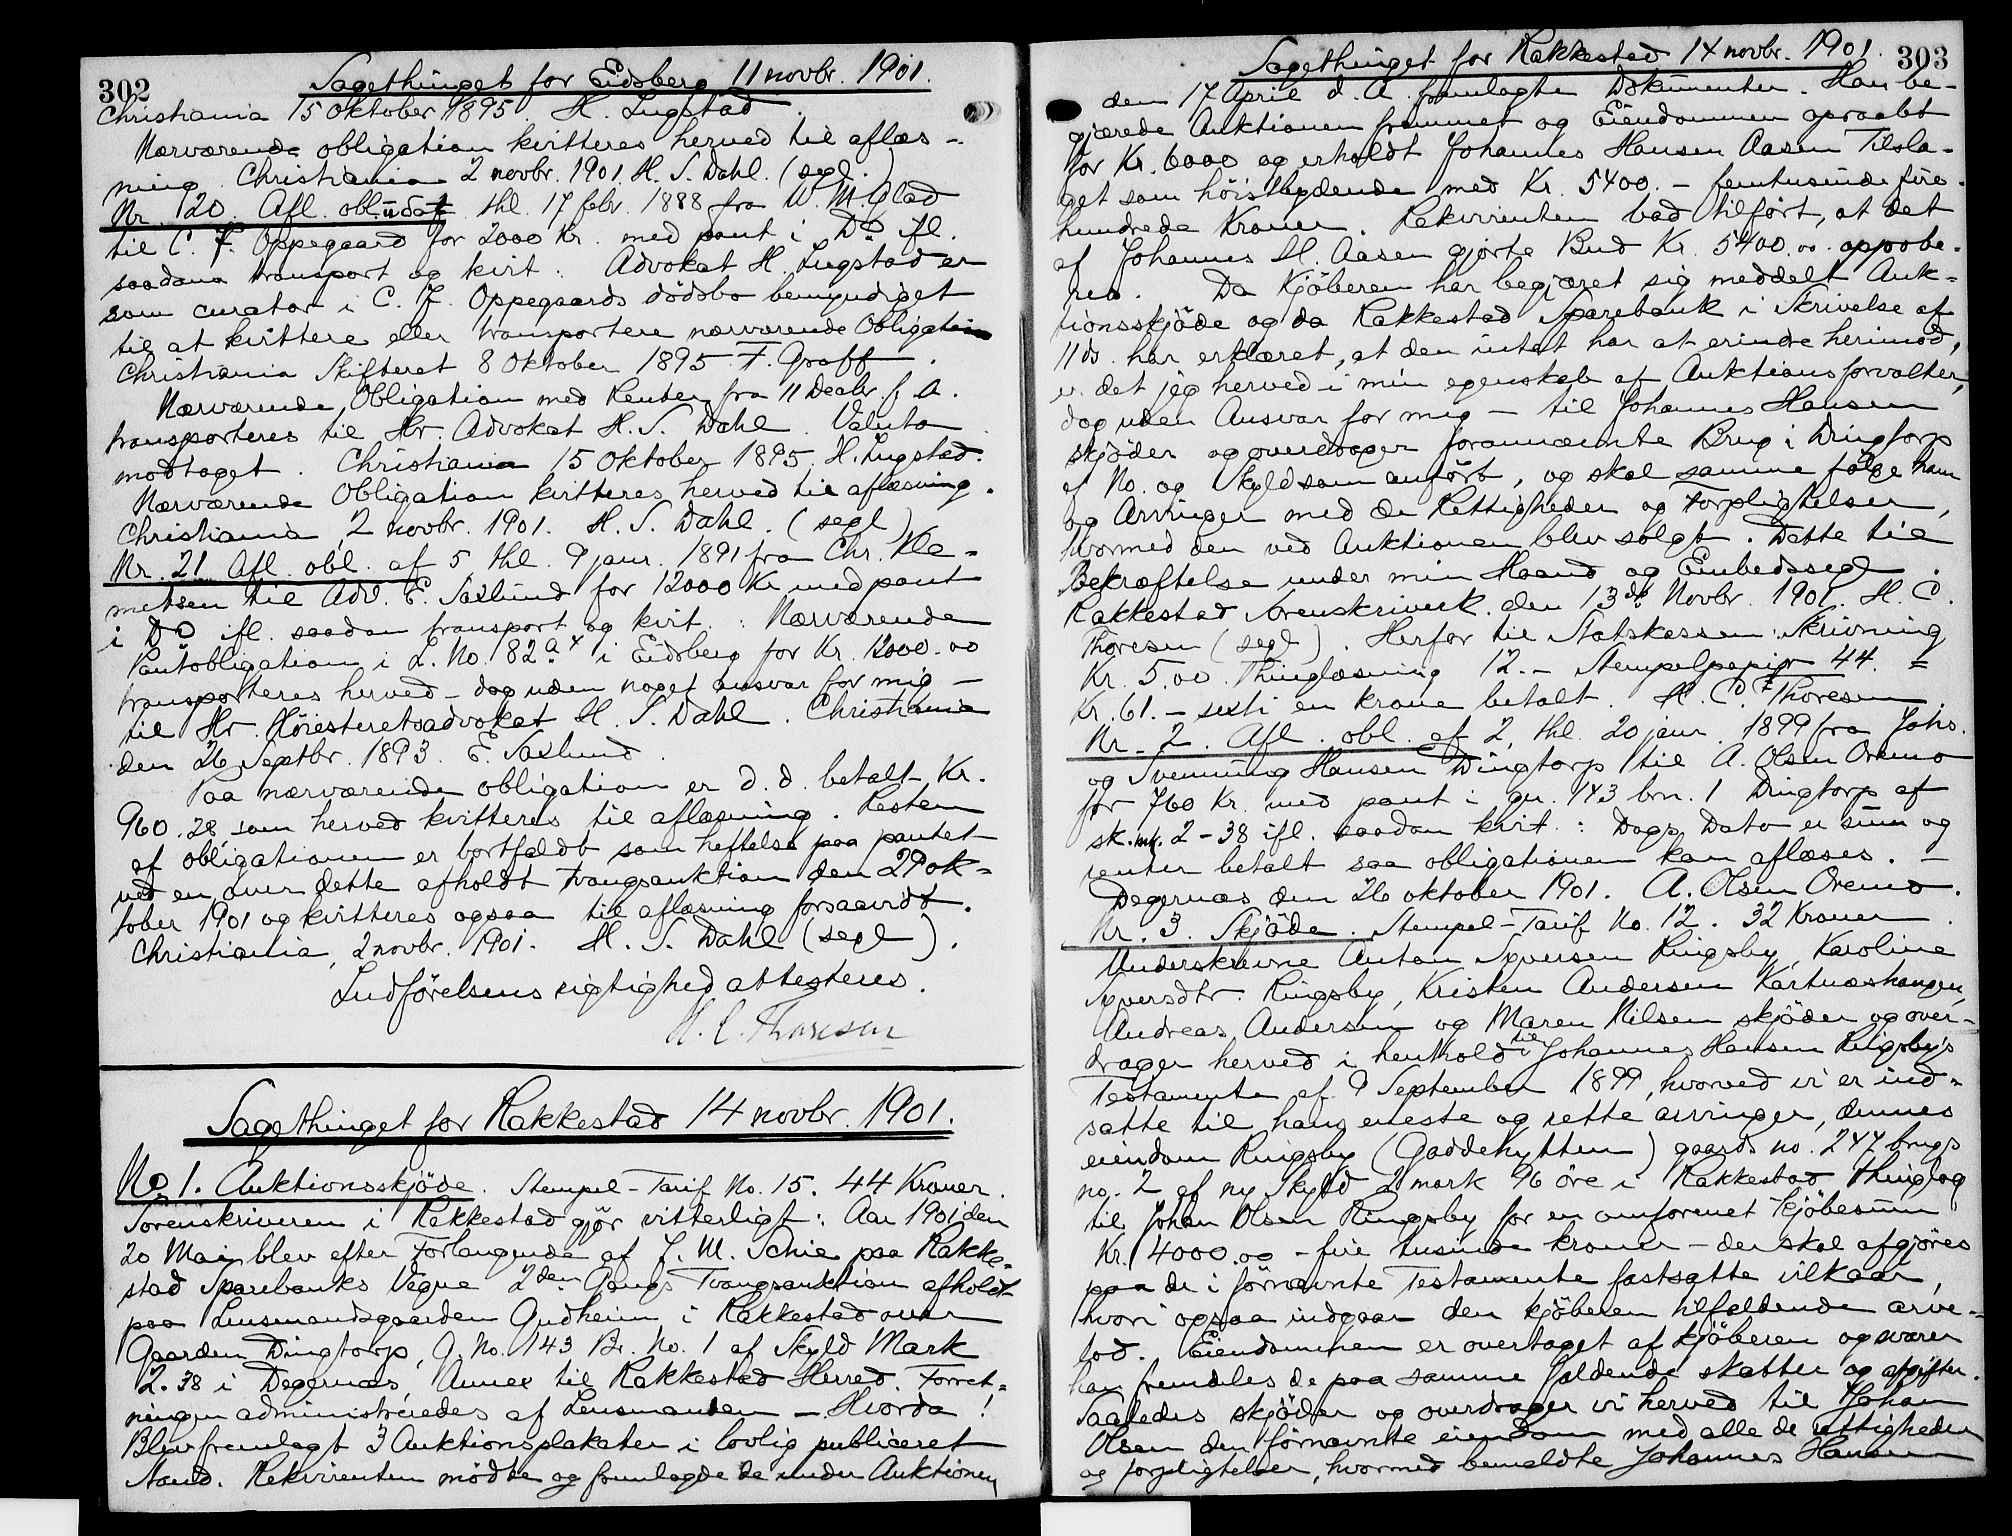 302
Sagethinget for Eidsberg 11 novbr. 1901.
Christiania 15 Oktober 1895. H. Lugstad.
Nærværende obligation kvitteres herved til aflæs-
ning. Christiania 2 novbr. 1901. H. S. Dahl. (segl.)
Nr. 20. Afl. obl. udat. thl. 17 febr. 1888 fra W. M. Glad
til C. F. Oppegaard for 2000 Kr. med pant i Do ifl.
saadan transport og kvit.: Advokat H. Lugstad er
som curator i C. F. Oppegaards dödsbo bemyndiget
til at kvittere eller transportere nærværende Obligation
Christiania Skifteret 8 Oktober 1895. F. Graff.
Nærværende Obligation med Renter fra 11 Decbr. f. A.
transporteres til Hr. Advokat H. S. Dahl. Valuta
modtaget. Christiania 15 Oktober 1895. H. Lugstad.
Nærværende Obligation kvitteres herved til aflæsning.
Christiania, 2 novbr. 1901. H. S. Dahl. (segl)
Nr. 21. Afl. obl. af 5 thl. 9 janr. 1891 fra Chr. Kle-
metsen til Adv. E. Saxlund for 12000 Kr med pant
i Do ifl. saadan transport og kvit.: Nærværende
Pantobligation i L. No. 82a4 i Eidsberg for Kr. 12000.00
transporteres herved – dog uden noget ansvar for mig –
til Hr. Höiesteretsadvokat H. S. Dahl. Christiania
den 26 Septbr. 1893. E. Saxlund.
Paa nærværende obligation er d. d. betalt Kr.
960.28 som herved kvitteres til aflæsning. Resten
af obligationen er bortfaldt som heftelse paa pantet
ved en over dette afholdt tvangsauktion den 29 ok-
tober 1901 og kvitteres ogsaa til aflæsning forsaavidt.
Christiania, 2 novbr. 1901. H. S. Dahl (segl).
Indförelsens rigtighed attesteres.
H. C. Thoresen
Sagethinget for Rakkestad 14 novbr. 1901.
No 1. Auktionsskjöde. Stempel-Tarif No. 15. 44 Kroner.
Sorenskriveren i Rakkestad gjör vitterligt: Aar 1901 den
20 Mai blev efter Forlangende af J. M. Schie paa Rakke-
stad Sparebanks Vegne 2den Gangs Tvangsauktion afholdt
paa Lensmandsgaarden Gudheim i Rakkestad over
Gaarden Dingtorp, G. No. 143 Br. No. 1 af Skyld Mark
2.38 i Degernæs, Annex til Rakkestad Herred. Forret-
ningen administreredes af Lensmanden – Hvorda!
Blev fremlagt 3 Auktionsplakater i lovlig publiceret
Stand. Rekvirenten mödte og fremlagde de under Auktionen
303
Sagethinget for Rakkestad 14 novbr. 1901.
den 17 April d. A. fremlagte Dokumenter. Han be-
gjærede Auktionen fremmet og Eiendommen opraabt
for Kr. 6000 og erholdt Johannes Hansen Aasen Tilsla-
get som höistbydende med Kr. 5400. – femtusinde fire-
hundrede Kroner. Rekvirenten bad tilfört, at det
af Johannes H. Aasen gjorte Bud Kr. 5400.00 approbe-
res. Da Kjöberen har begjæret sig meddelt Auk-
tionsskjöde og da Rakkestad Sparebank i Skrivelse af
11 ds. har erklæret, at den intet har at erindre herimod,
er det jeg herved i min egenskab af Auktionsforvalter,
dog uden Ansvar for mig – til Johannes Hansen
skjöder og overdrager forannævnte Brug i Dingtorp
af No. og Skyld som anfört, og skal samme fölge ham
og Arvinger med de Rettigheder og Forpligtelser,
hvormed den ved Auktionen blev solgt. Dette til
Bekræftelse under min Haand og Embedssegl.
Rakkestad Sorenskriverk. den 13de Novbr. 1901. H. C.
Thoresen (segl). Herfor til Statskassen: Skrivning
Kr. 5.00. Thinglæsning 12.– Stempelpapir 44. =
Kr. 61. – sexti en krone betalt. H. C. Thoresen
Nr. 2. Afl. obl. af 2, thl. 20 janr. 1899 fra Johs.
og Svenning Hansen Dingtorp til A. Olsen Oremo
for 760 Kr. med pant i gn. 143 brn. 1 Dingtorp af
sk. mk. 2-38 ifl. saadan kvit.: Dags Dato er sum og
renter betalt saa obligationen kan aflæses. –
Degernæs den 26 oktober 1901. A. Olsen Oremo.
Nr. 3. Skjöde. Stempel-Tarif No. 12. 32 Kroner.
Underskrevne Anton Syversen Ringsby, Karoline
Syversdtr. Ringsby, Kristen Andersen Kartnæshaugen,
Andreas Andersen og Maren Nilsen skjöder og over-
drager herved i henhold til Johannes Hansen Ringsby's
Testamente af 9 September 1899, hvorved vi er ind-
satte til hans eneste og rette arvinger, dennes
eiendom Ringsby (Gaddehytten) gaards no. 247 brugs
no. 2 af ny Skyld 2 mark 96 öre i Rakkestad Thinglag
til Johan Olsen Ringsby for en omforenet kjöbesum
Kr. 4000.00 – fire tusinde kroner – der skal afgjöres
paa de i förnævnte Testamente fastsatte vilkaar,
hvori ogsaa indgaar den kjöberen tilfaldende arve-
lod. Eiendommen er overtaget af kjöberen og svarer
han fremdeles de paa samme faldende skatter og afgifter.
Saaledes skjöder og overdrager vi herved til Johan
Olsen den förnævnte eiendom med alle de rettigheder
og forpligtelser, hvormed bemeldte Johannes Hansen